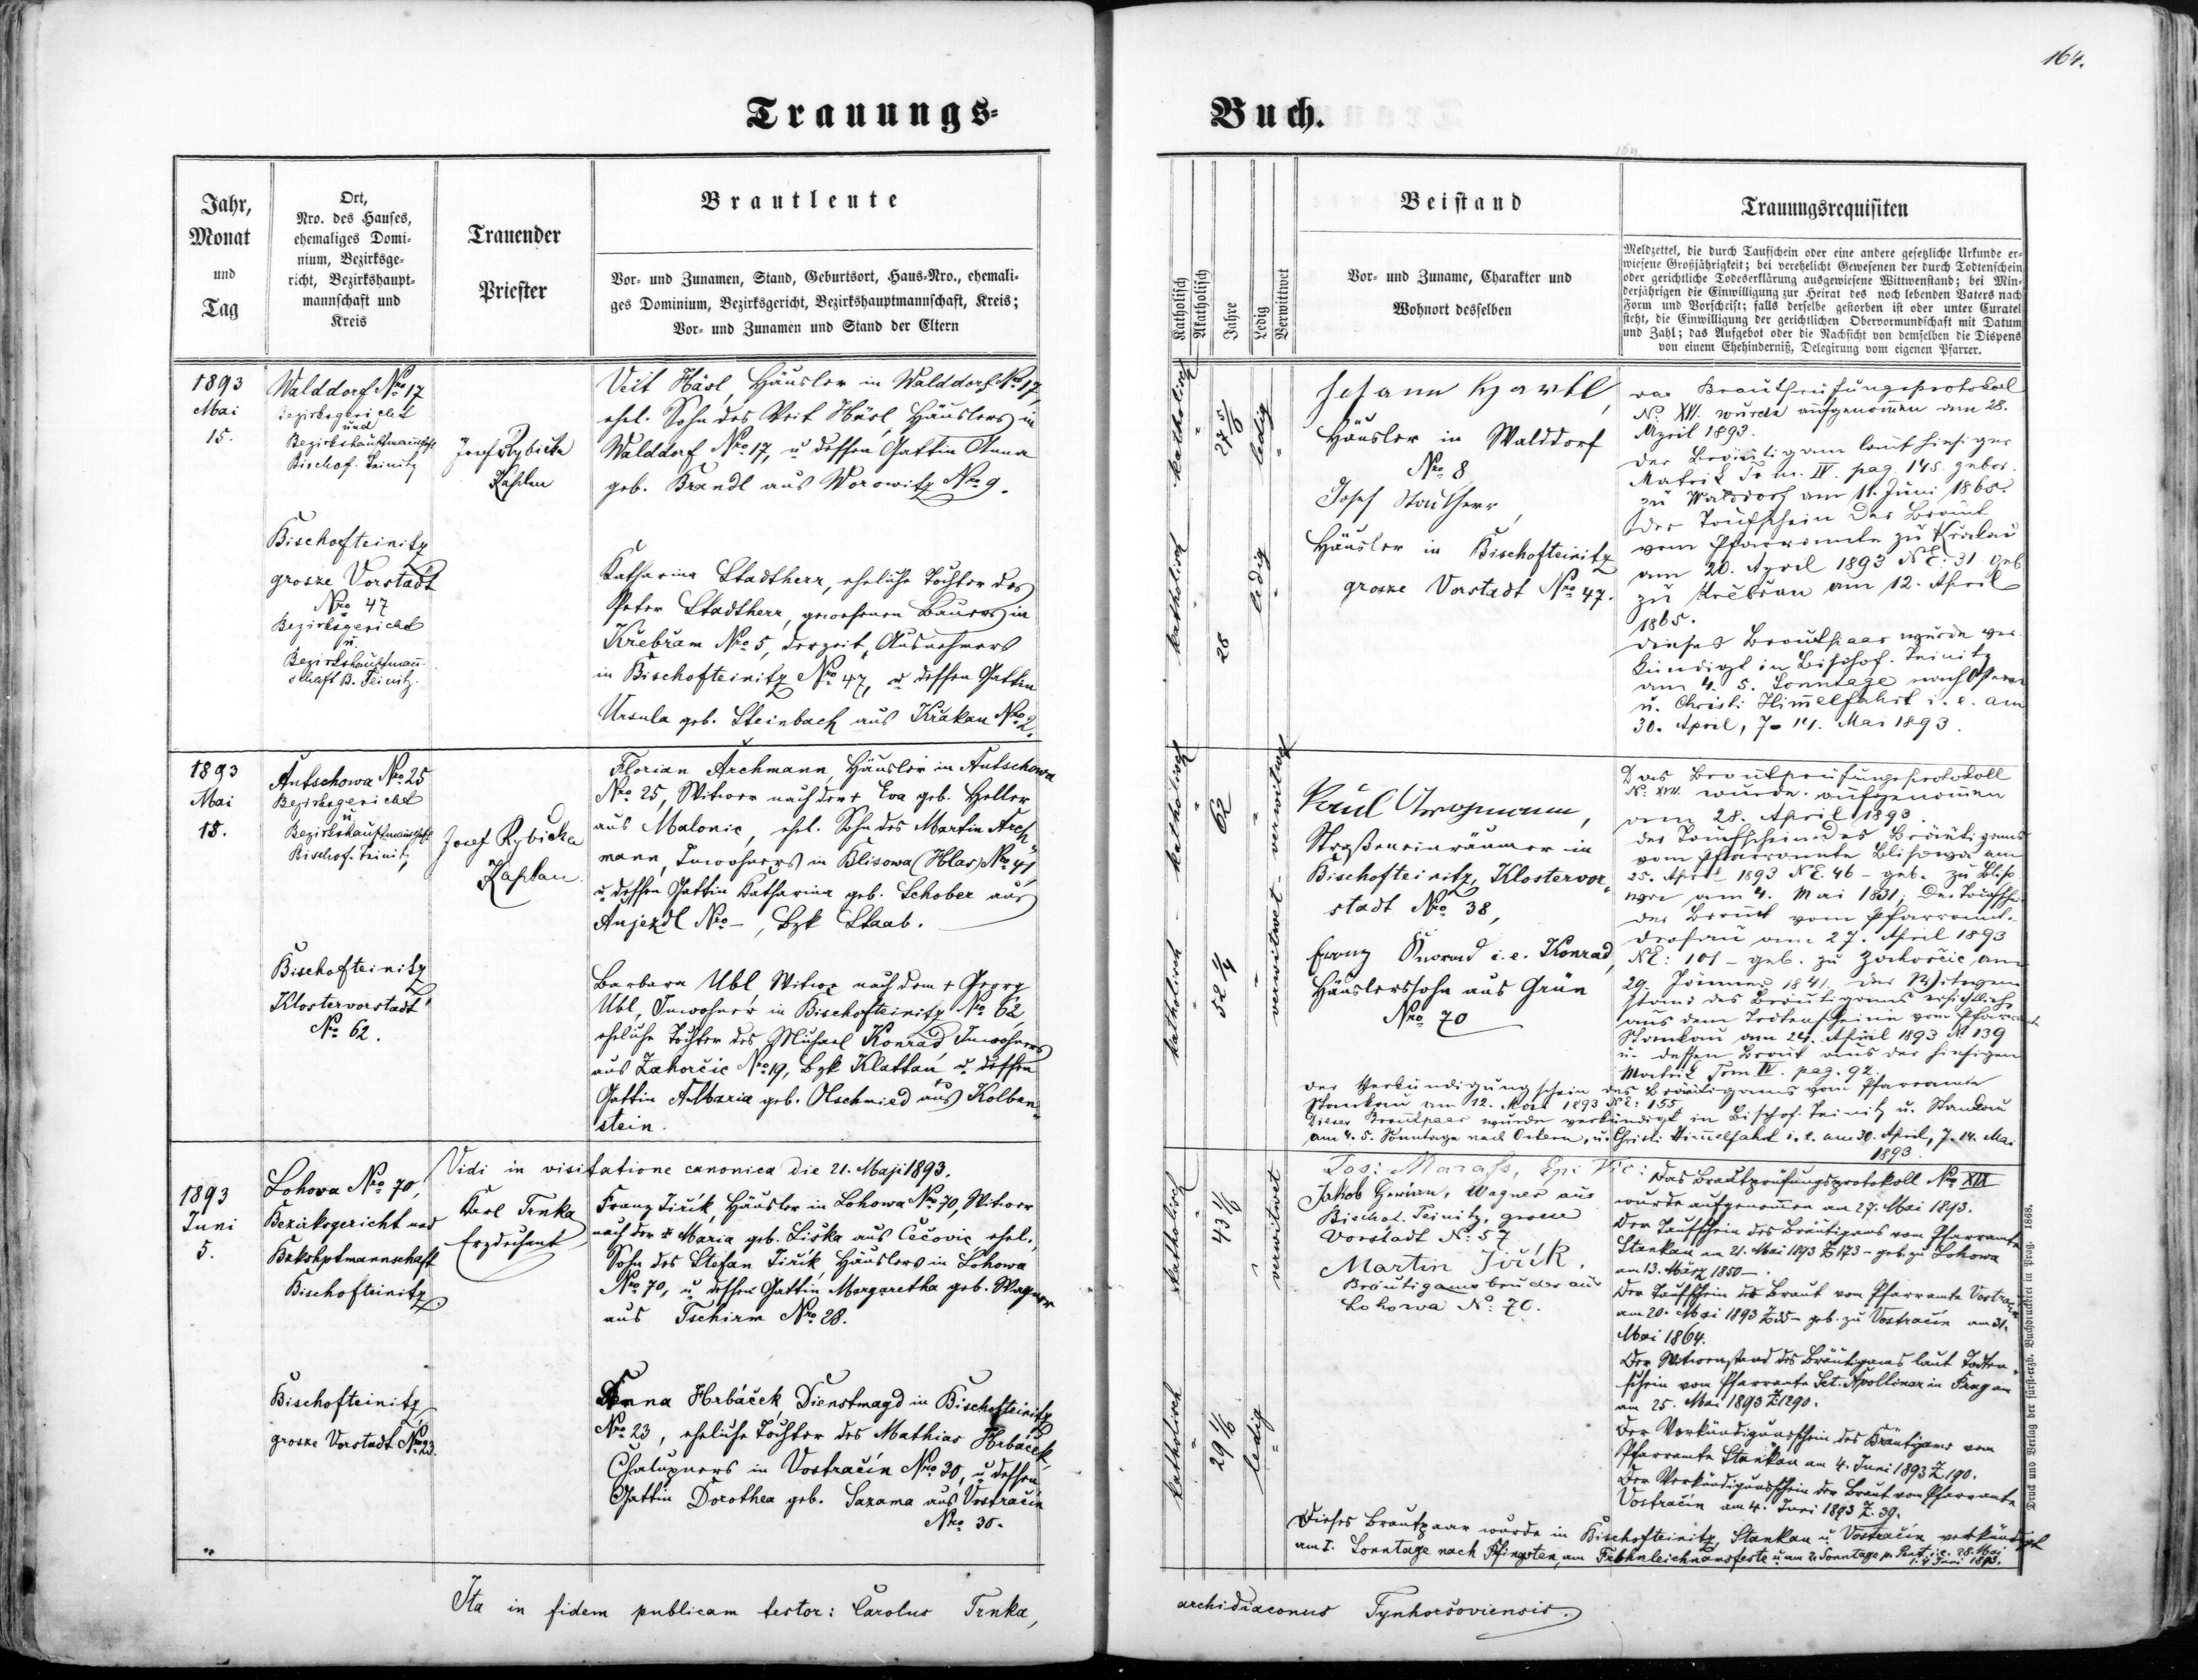 164.
Trauungs-
Buch.
Jahr,
Monat
und
Tag
Ort,
Nro. des Hauses,
ehemaliges Domi-
nium, Bezirksge-
richt, Bezirkshaupt-
mannschaft und
Kreis
Trauender
Priester
Brautleute
Vor- und Zunamen, Stand, Geburtsort, Haus-Nro., ehemali-
ges Dominium, Bezirksgericht, Bezirkshauptmannschaft, Kreis;
Vor- und Zunamen und Stand der Eltern
Katholisch
Akatholisch
Jahre
Ledig
Verwittwet
Beistand
Vor- und Zuname, Charakter und
Wohnort desselben
Trauungsrequisiten
Meldzettel, die durch Taufschein oder eine andere gesetzliche Urkunde er-
wiesene Großjährigkeit; bei verehelicht Gewesenen der durch Todtenschein
oder gerichtliche Todeserklärung ausgewiesene Wittwenstand; bei Min-
derjährigen die Einwilligung zur Heirat des noch lebenden Vaters nach
Form und Vorschrift; falls derselbe gestorben ist oder unter Curatel
steht, die Einwilligung der gerichtlichen Obervormundschaft mit Datum
und Zahl; das Aufgebot oder die Nachsicht von demselben die Dispens
von einem Ehehinderniß, Delegirung vom eigenen Pfarrer.
1893
Mai
15.
Walddorf Nro 17
Bezirksgericht
und
Bezirkshauptmannschft
Bischof. Teinitz
Josef Rybicka
Kaplan
Veit Häsl, Häusler in Walddorf No 17,
ehel. Sohn des Veit Häsl, Häuslers in
Walddorf Nro 17, u dessen Gattin Anna
geb. Brandl aus Worowitz Nro 9.
Bischofteinitz
grosze Vorstadt
Nro 47
Bezirksgericht
u.
Bezirkshauptmann-
schaft B. Teinitz.
Katharina Stadtherr, eheliche Tochter des
Peter Stadtherr, gewesenen Bauers in
Křebřam Nro 5, derzeit Ausnehmers
in Bischofteinitz Nro 47, u dessen Gattin
Ursula geb. Steinbach aus Křakau Nro 2.
katholisch
27
ledig
katholisch
28
ledig
Johann Hartl,
Häusler in Walddorf
Nro 8
Josef Stadtherr,
Häusler in Bischofteinitz
grosze Vorstadt Nro 47.
das Brautprüfungsprotokoll
No. XVI. wurde aufgenommen am 28.
April 1893.
der Bräutigam laut hiesiger
Matrik Tom. IV. pag. 145. gebor.
zu Walddorf am 11. Juni 1865.
der Taufschein der Braut
vom Pfarramte zu Krakau
am 20. April 1893 NE: 31 geb
zu Křebřan am 12. April
1865.
dieses Brautpaar wurde ver-
kündigt in Bischof. Teinitz
am 4. 5. Sonntage nach Ostern
u. Christi Himmelfahrt i. e. am
30. April, 7. 11. Mai 1893.
1893
Mai
18.
Autschowa Nro 25
Bezirksgericht
u
Bezirkshauptmannschft
Bischof. Teinitz
Josef Rybicka
Kaplan
Florian Archmann, Häusler in Autschowa
Nro 25, Witwer nach der + Eva geb. Heller
aus Malonic, ehel. Sohn des Martin Arch-
mann, Inwohners in Blisowa (Hlas) Nro 41,
u dessen Gattin Katharina geb. Schober aus
Anjezdl Nro –, Bzk Staab.
Bischofteinitz
Klostervorstadt
No 62.
Barbara Ubl Witwe nach dem + Georg
Ubl, Inwohner in Bischofteinitz No 62
eheliche Tochter des Michael Konrad Inwohners
aus Zahořčic Nro 19, Bzk Klattau u dessen
Gattin Maria geb. Olschmied aus Kolben-
stein.
katholisch
62
verwitwet
katholisch
52 1/4
verwitwet
Paul
Straßeneinräumer in
Bischofteinitz, Klostervor-
stadt No 38,
Franz Konrad i. e. Konrad,
Häuslerssohn aus Grün
Nro 70
Das Brautprüfungsprotokoll
No: XVII. wurde aufgenommen
am 28. April 1893.
der Taufschein des Bräutigams
vom Pfarramte Blisowa am
25. April 1893 NE. 46 – geb. zu Bliso-
wa am 4. Mai 1831; Der Taufschein
der Braut vom Pfarramt
am 27. April 1893
NE: 101 – geb. zu Zahořčic am
29. Jänner 1841. Der Witwen-
stand des Bräutigams ersichtlich
aus dem Todtenscheine vom Pfarramt
Stankau am 24. April 1893 No 139
u. dessen Braut aus der hiesigen
Matrik Tom IV. pag. 92.
der Verkündigungschein des Bräutigams vom Pfarramte
Stankau am 12. Mai 1893 NE: 155
Dieses Brautpaar wurde verkündigt in Bischof. Teinitz u. Stankau
am 4. 5. Sonntage nach Ostern, u. Christi Himmelfahrt i. e. am 30. April, 7. 14. Mai
1893.
Vidi in visitatione canonica die 21. Maji 1893.
Jos: Marass, Epi Vic:
1893
Juni
5.
Lohova Nro 70,
Bezirksgericht und
Bzkshptmannschaft
Bischofteinitz
Karl Trnka
Erzdechant
Franz Jiřík, Häusler in Lohowa Nro 70, Witwer
nach der + Maria geb. Liska aus Čečovic, ehel.
Sohn des Stefan Jiřík, Häuslers in Lohowa
No 70, u dessen Gattin Margaretha geb. Wagner
aus Tschirm Nro 28.
Bischofteinitz
grosze Vorstadt Nro 23.
Anna Hrbáček, Dienstmagd in Bischofteinitz
Nro 23, eheliche Tochter des Mathias Hrbáček,
Chalupners in Vostračín Nro 30, u dessen
Gattin Dorothea geb. Sazama aus Vostračín
Nro 30.
katholisch
43
verwitwet
katholisch
29
ledig
Jakob German, Wagner aus
Bischof. Teinitz, grosse
Vorstadt No: 57
Martin Jiřík,
Bräutigams bruder aus
Lohowa No: 70.
Das Brautprüfungsprotokoll Nro XIX
wurde aufgenommen am 27. Mai 1893.
Der Taufschein des Bräutigams vom Pfarramte
Stankau am 21. Mai 1893 Z 173 – geb. zu Lohowa
am 13. März 1850 –.
Der Taufschein der Braut vom Pfarramte Vostračín
am 20. Mai 1893 Z 35 – geb. zu Vostračín am 31.
Mai 1864.
Der Witwerstand des Bräutigams laut Todten-
schein vom Pfarramte Sct. Apollinar in Prag am
am 25. Mai 1893 Z 1290.
Der Verkündigungsschein des Bräutigams vom
Pfarramte Stankau am 4. Juni 1893 Z. 190.
Der Verkündigungsschein der Braut vom Pfarramte
Vostračín am 4. Juni 1893 Z. 39.
Dieses Brautpaar wurde in Bischofteinitz, Stankau u Vostračín verkündigt
am I. Sonntage nach Pfingsten, am Frohnleichnamsfeste u am 2. Sonntage p. Pent. i. e. 28. Mai
1. 4 Juni 1893.
Druck und Verlag der fürst-erzb. Buchdruckerei in Prag. 1868.
Ita in fidem publicam testor: Carolus Trnka,
archidiaconus Tynhoršoviensis.